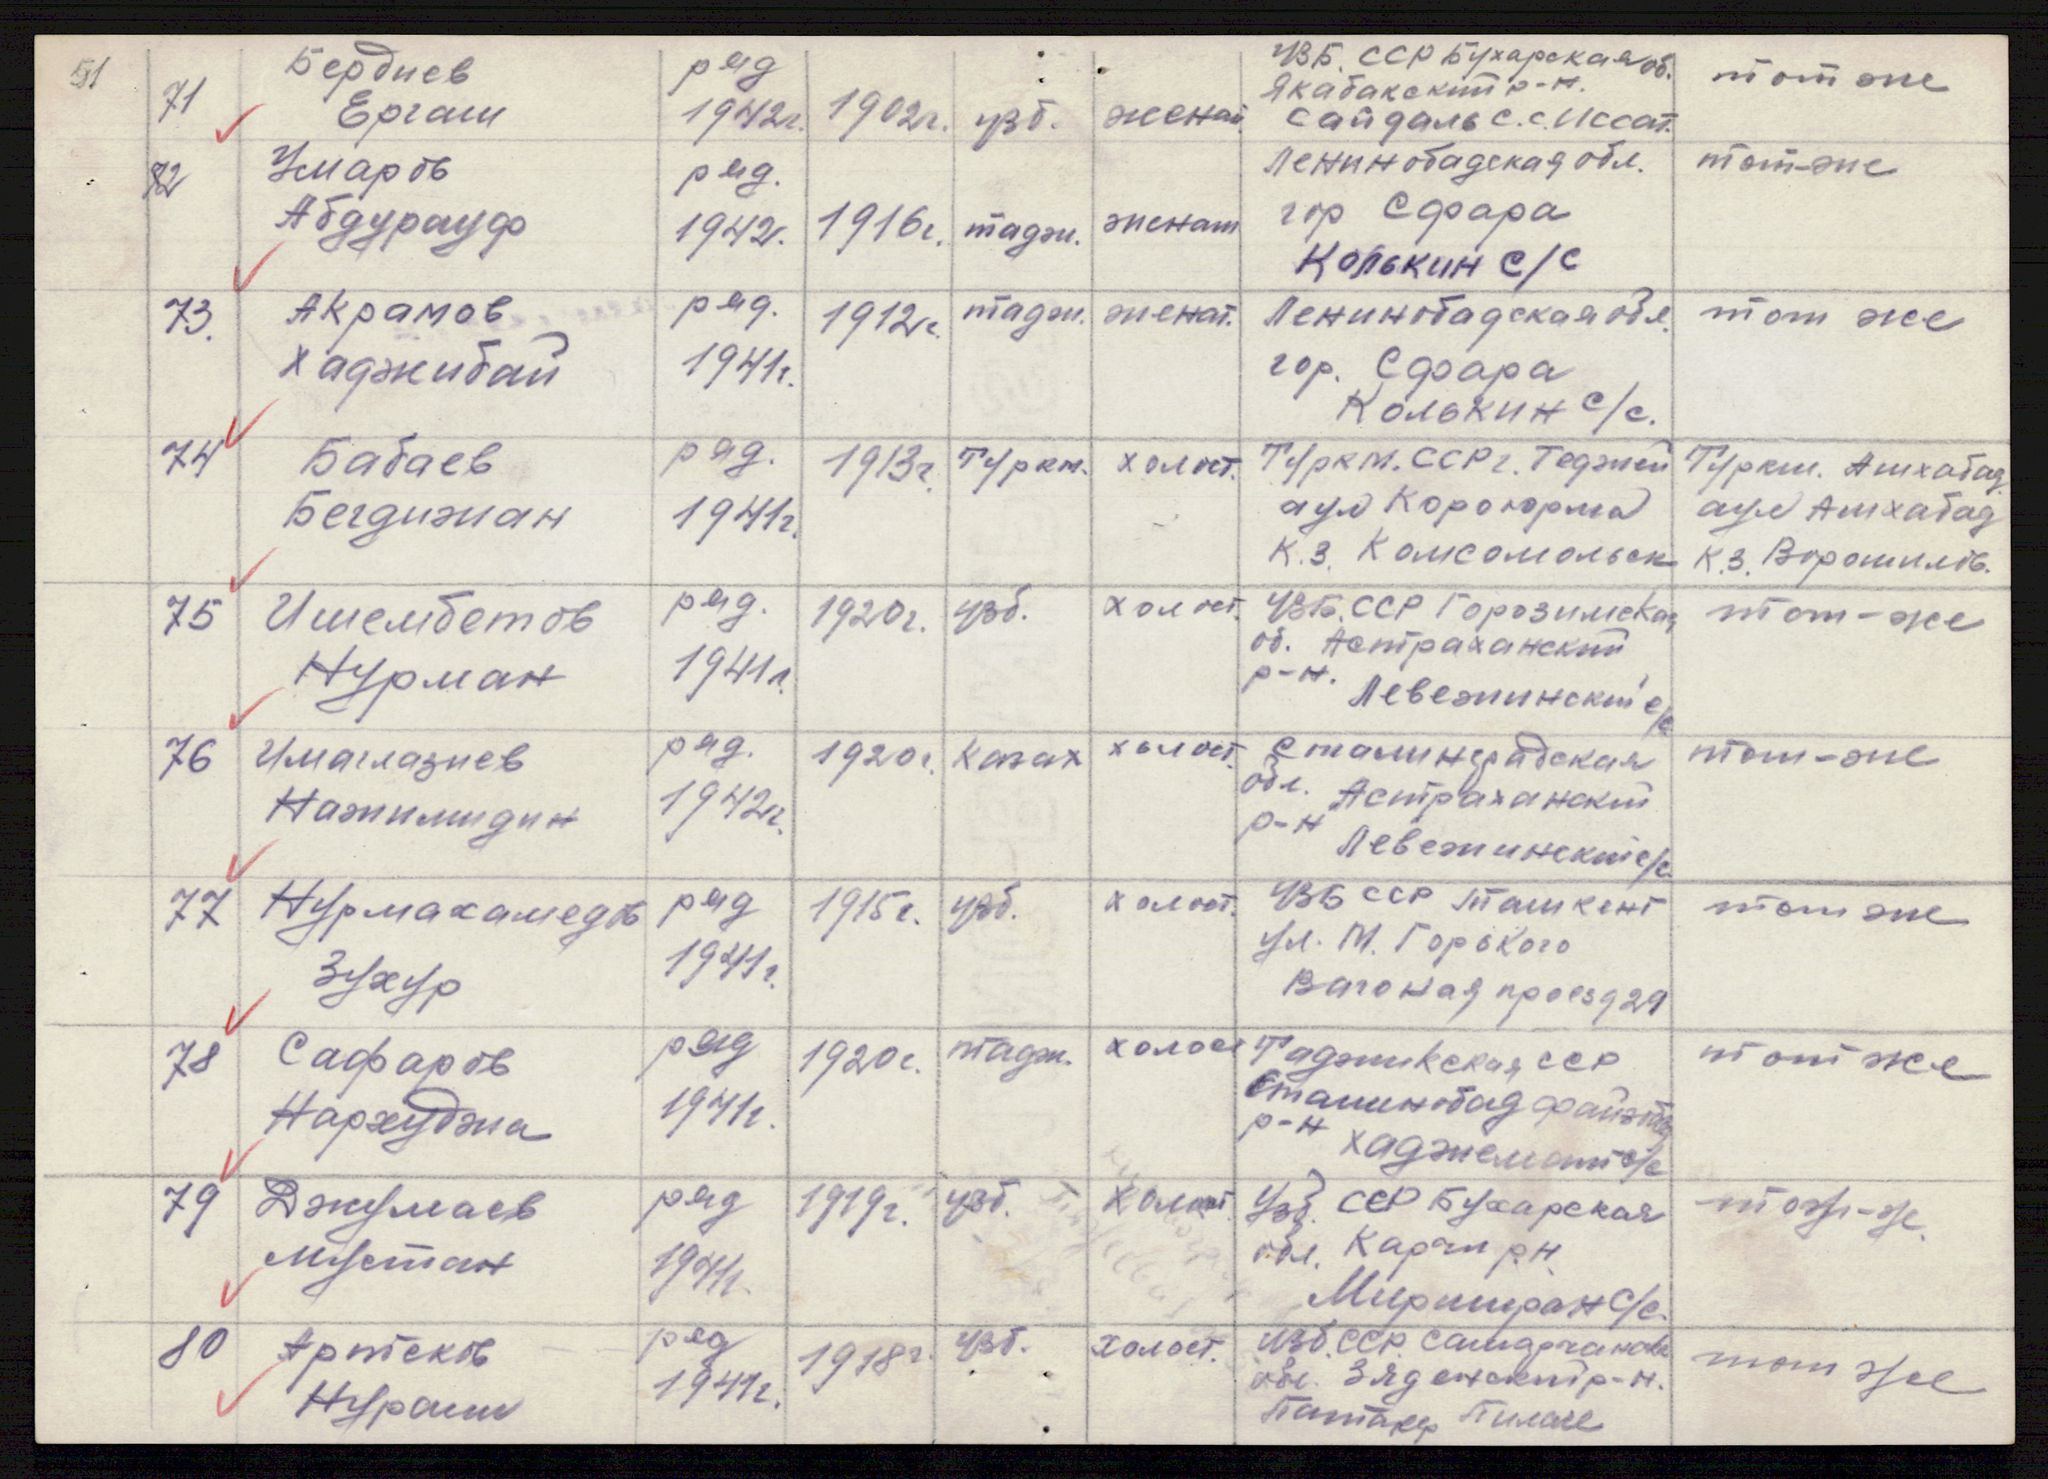 51
71
Бердиев
Ергаш
ряд
1942г.
1902г.
узб.
женат
УзБ. ССР Бухарская об.
Якабакский р-н.
Сайдаль с.с. Иссат.
тот же
72
Умаров
Абдурауф
ряд.
1942г.
1916г.
тадж.
женат
Ленинобадская обл.
гор Сфара
Колькин с/с
тот-же
73.
Акрамов
Хаджибай
ряд.
1941г.
1912г.
тадж.
женат.
Ленинобадская обл.
гор. Сфара
Колькин с/с.
тот же
74
Бабаев
Бегдижан
ряд.
1941г.
1913г.
Туркм.
холост.
Туркм. ССР г. Теджен
аул Короюрма
К.З. Комсомольск
Туркм. Ашхабад
аул Ашхабад
К.З. Ворошилов.
75
Ишембетов
Нурман
ряд.
1941г.
1920г.
узб.
холост.
УзБ. ССР Горозимская
об. Астраханский
р-н.
Левежинский с/с
тот-же
76
Имаглазиев
Нажимидин
ряд.
1942г.
1920г.
Казах
холост.
Сталинградская
обл. Астраханский
р-н
Левежинский с/с
тот-же
77
Нурмахамедов
Зухур
ряд
1941г.
1915г.
узб.
холост.
УзБ ССР Ташкент
ул. М. Горького
Вагоная проезд 29
тот же
78
Сафаров
Нархуджа
ряд
1941г.
1920г.
тадж.
холост
Таджикская ССР
Сталинобад
р-н
Хаджемат с/с
тот же
79
Джумаев
Мустан
ряд
1941г.
1919г.
узб.
холост.
Узб. ССР Бухарская
обл. Карчи р.н.
Миришран с/с.
тот-же.
80
Артеков
Нураш
ряд
1941г.
1918г.
узб.
холост.
Узб. ССР
обл. Зяденский р-н.
тот же